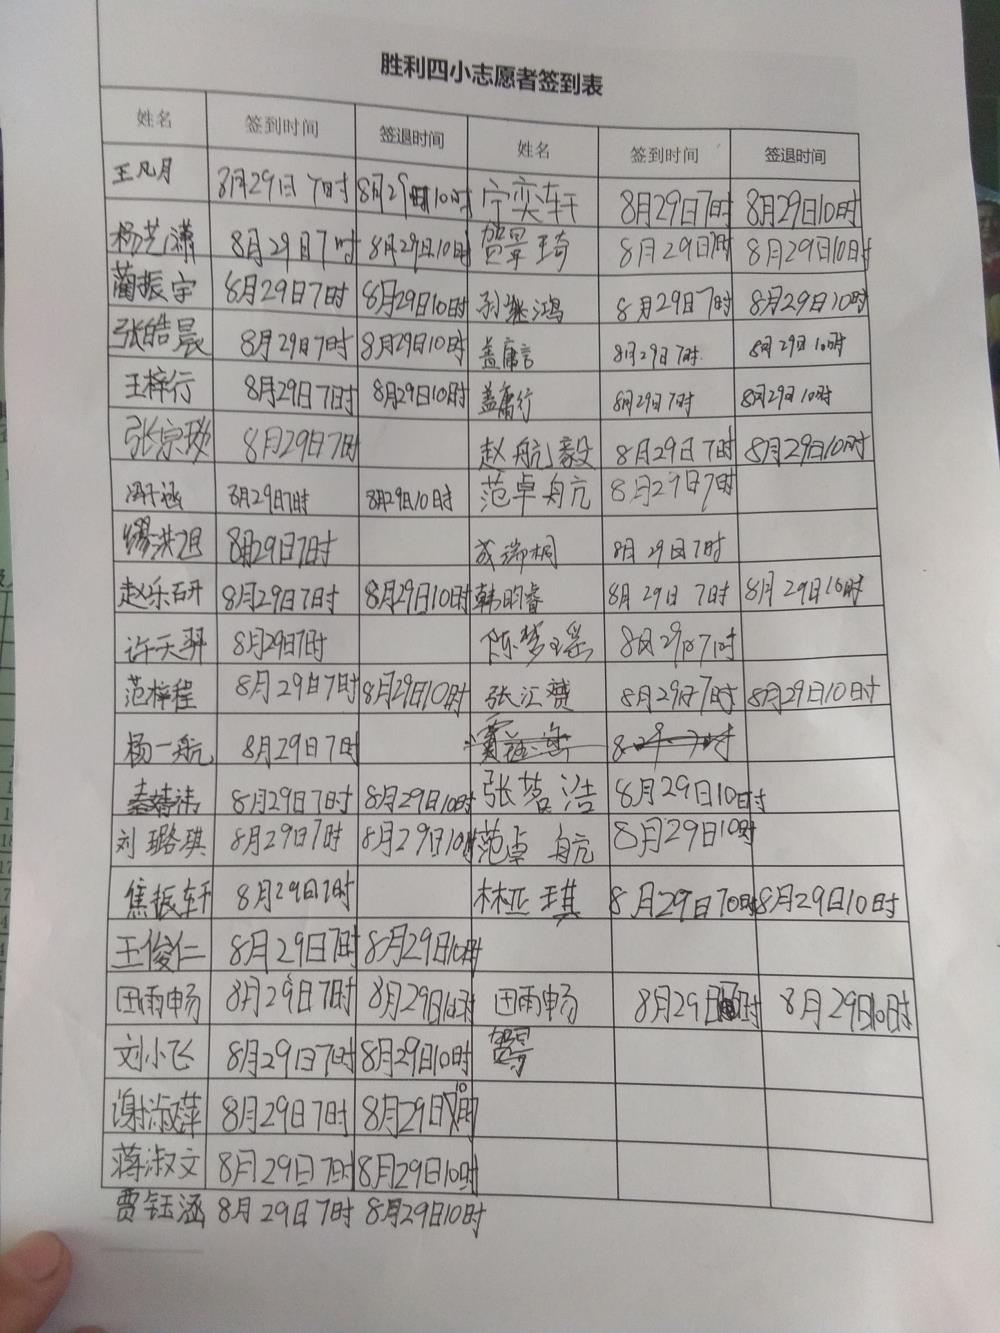 胜利四小志愿者签到表
姓名 签到时间 签退时间 姓名 签到时间 签退时间
王凡月 8月29日7时 8月29日10时 宁奕轩 8月29日7时 8月29日10时
杨艺潇 8月29日7时 8月29日10时 贺景琦 8月29日7时 8月29日10时
蔺振宇 8月29日7时 8月29日10时 孙继鸿 8月29日7时 8月29日10时
张皓晨 8月29日7时 8月29日10时 盖庸言 8月29日7时 8月29日10时
王梓行 8月29日7时 8月29日10时 盖庸行 8月29日7时 8月29日10时
张宗 8月29日7时 赵航毅 8月29日7时 8月29日10时
冯子涵 8月29日7时 8月29日10时 范卓航 8月29日7时
缪洪旭 8月29日7时 成瑞桐 8月29日7时
赵乐研 8月29日7时 8月29日10时 韩昀睿 8月29日7时 8月29日10时
许天羿 8月29日7时 陈梦瑶 8月29日7时
范梓程 8月29日7时 8月29日10时 张汇赟 8月29日7时 8月29日10时
杨一航 8月29日7时
秦婧祎 8月29日7时 8月29日10时 张茗浩 8月29日10时
刘璐琪 8月29日7时 8月29日10时 范卓航 8月29日10时
焦振轩 8月29日7时 林亚琪 8月29日70时 8月29日10时
王俊仁 8月29日7时 8月29日10时
田雨畅 8月29日7时 8月29日10时 田雨畅 8月29日时 8月29日10时
刘小飞 8月29日7时 8月29日10时
谢淑萍 8月29日7时 8月29日10时
蒋淑文 8月29日7时 8月29日10时
贾钰涵 8月29日7时 8月29日10时